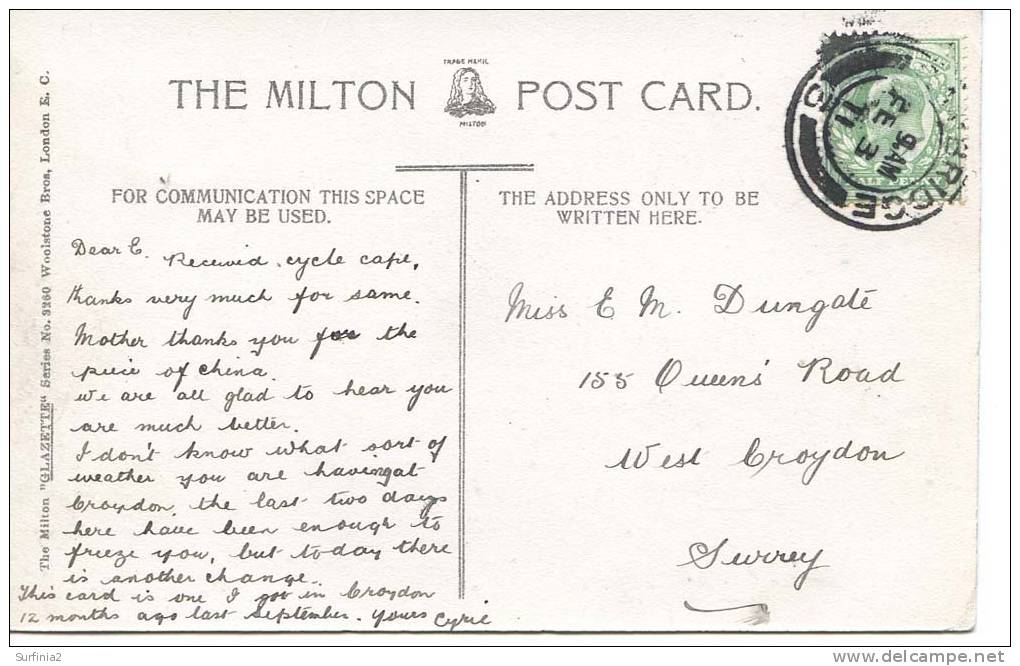 TRADE MARK
THE MILTON POST CARD.
MILTON
FOR COMMUNICATION THIS SPACE
MAY BE USED.
THE ADDRESS ONLY TO BE
WRITTEN HERE.
The Milton "GLAZETTE" Series No. 3260 Woolstone Bros, London E. C.
Dear E. Receivid cycle cape,
thanks very much for same.
Mother thanks you for the
peice of china.
We are all glad to hear you
are much better.
I don't know what sort of
weather you are having at
Croydon, the last two days
here have been enough to
freeze you, but today there
is another change.
This card is one I got in Croydon
12 months ago last september. Yours Cyril
Miss E M. Dungate
155 Queen's Road
West Croydon
Surrey
9 AM
FE 3
11
Surfinia2
www.delcampe.net